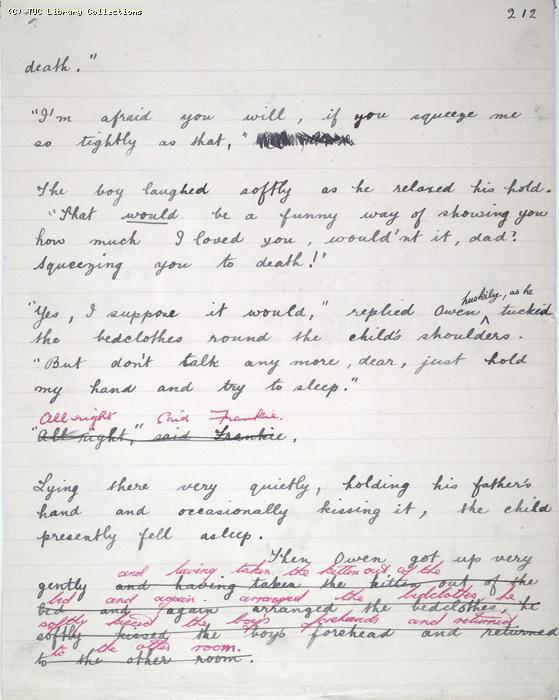 (C) TUC Library Collections
212
death."
"I'm afraid you will, if you squeeze me
so tightly as that,"
The boy laughed softly as he relaxed his hold.
"That would be a funny way of showing you
how much I loved you, would'nt it, dad?
Squeezing you to death!"
huskily, as he
"Yes, I suppose it would," replied Owen tucked
the bedclothes round the child's shoulders.
"But don't talk any more, dear, just hold
my hand and try to sleep."
All right said Frankie.
"All right," said Frankie.
Lying there very quietly, holding his father's
hand and occasionally kissing it, the child
presently fell asleep.
Then Owen got up very
and having taken the kitten out of the
gently and having taken the kitten out of the
bed and again arranged the bedclothes he
bed and again arranged the bedclothes, he
softly kissed the boy's forehead and returned
softly kissed the boy's forehead and returned
to the other room.
to the other room.